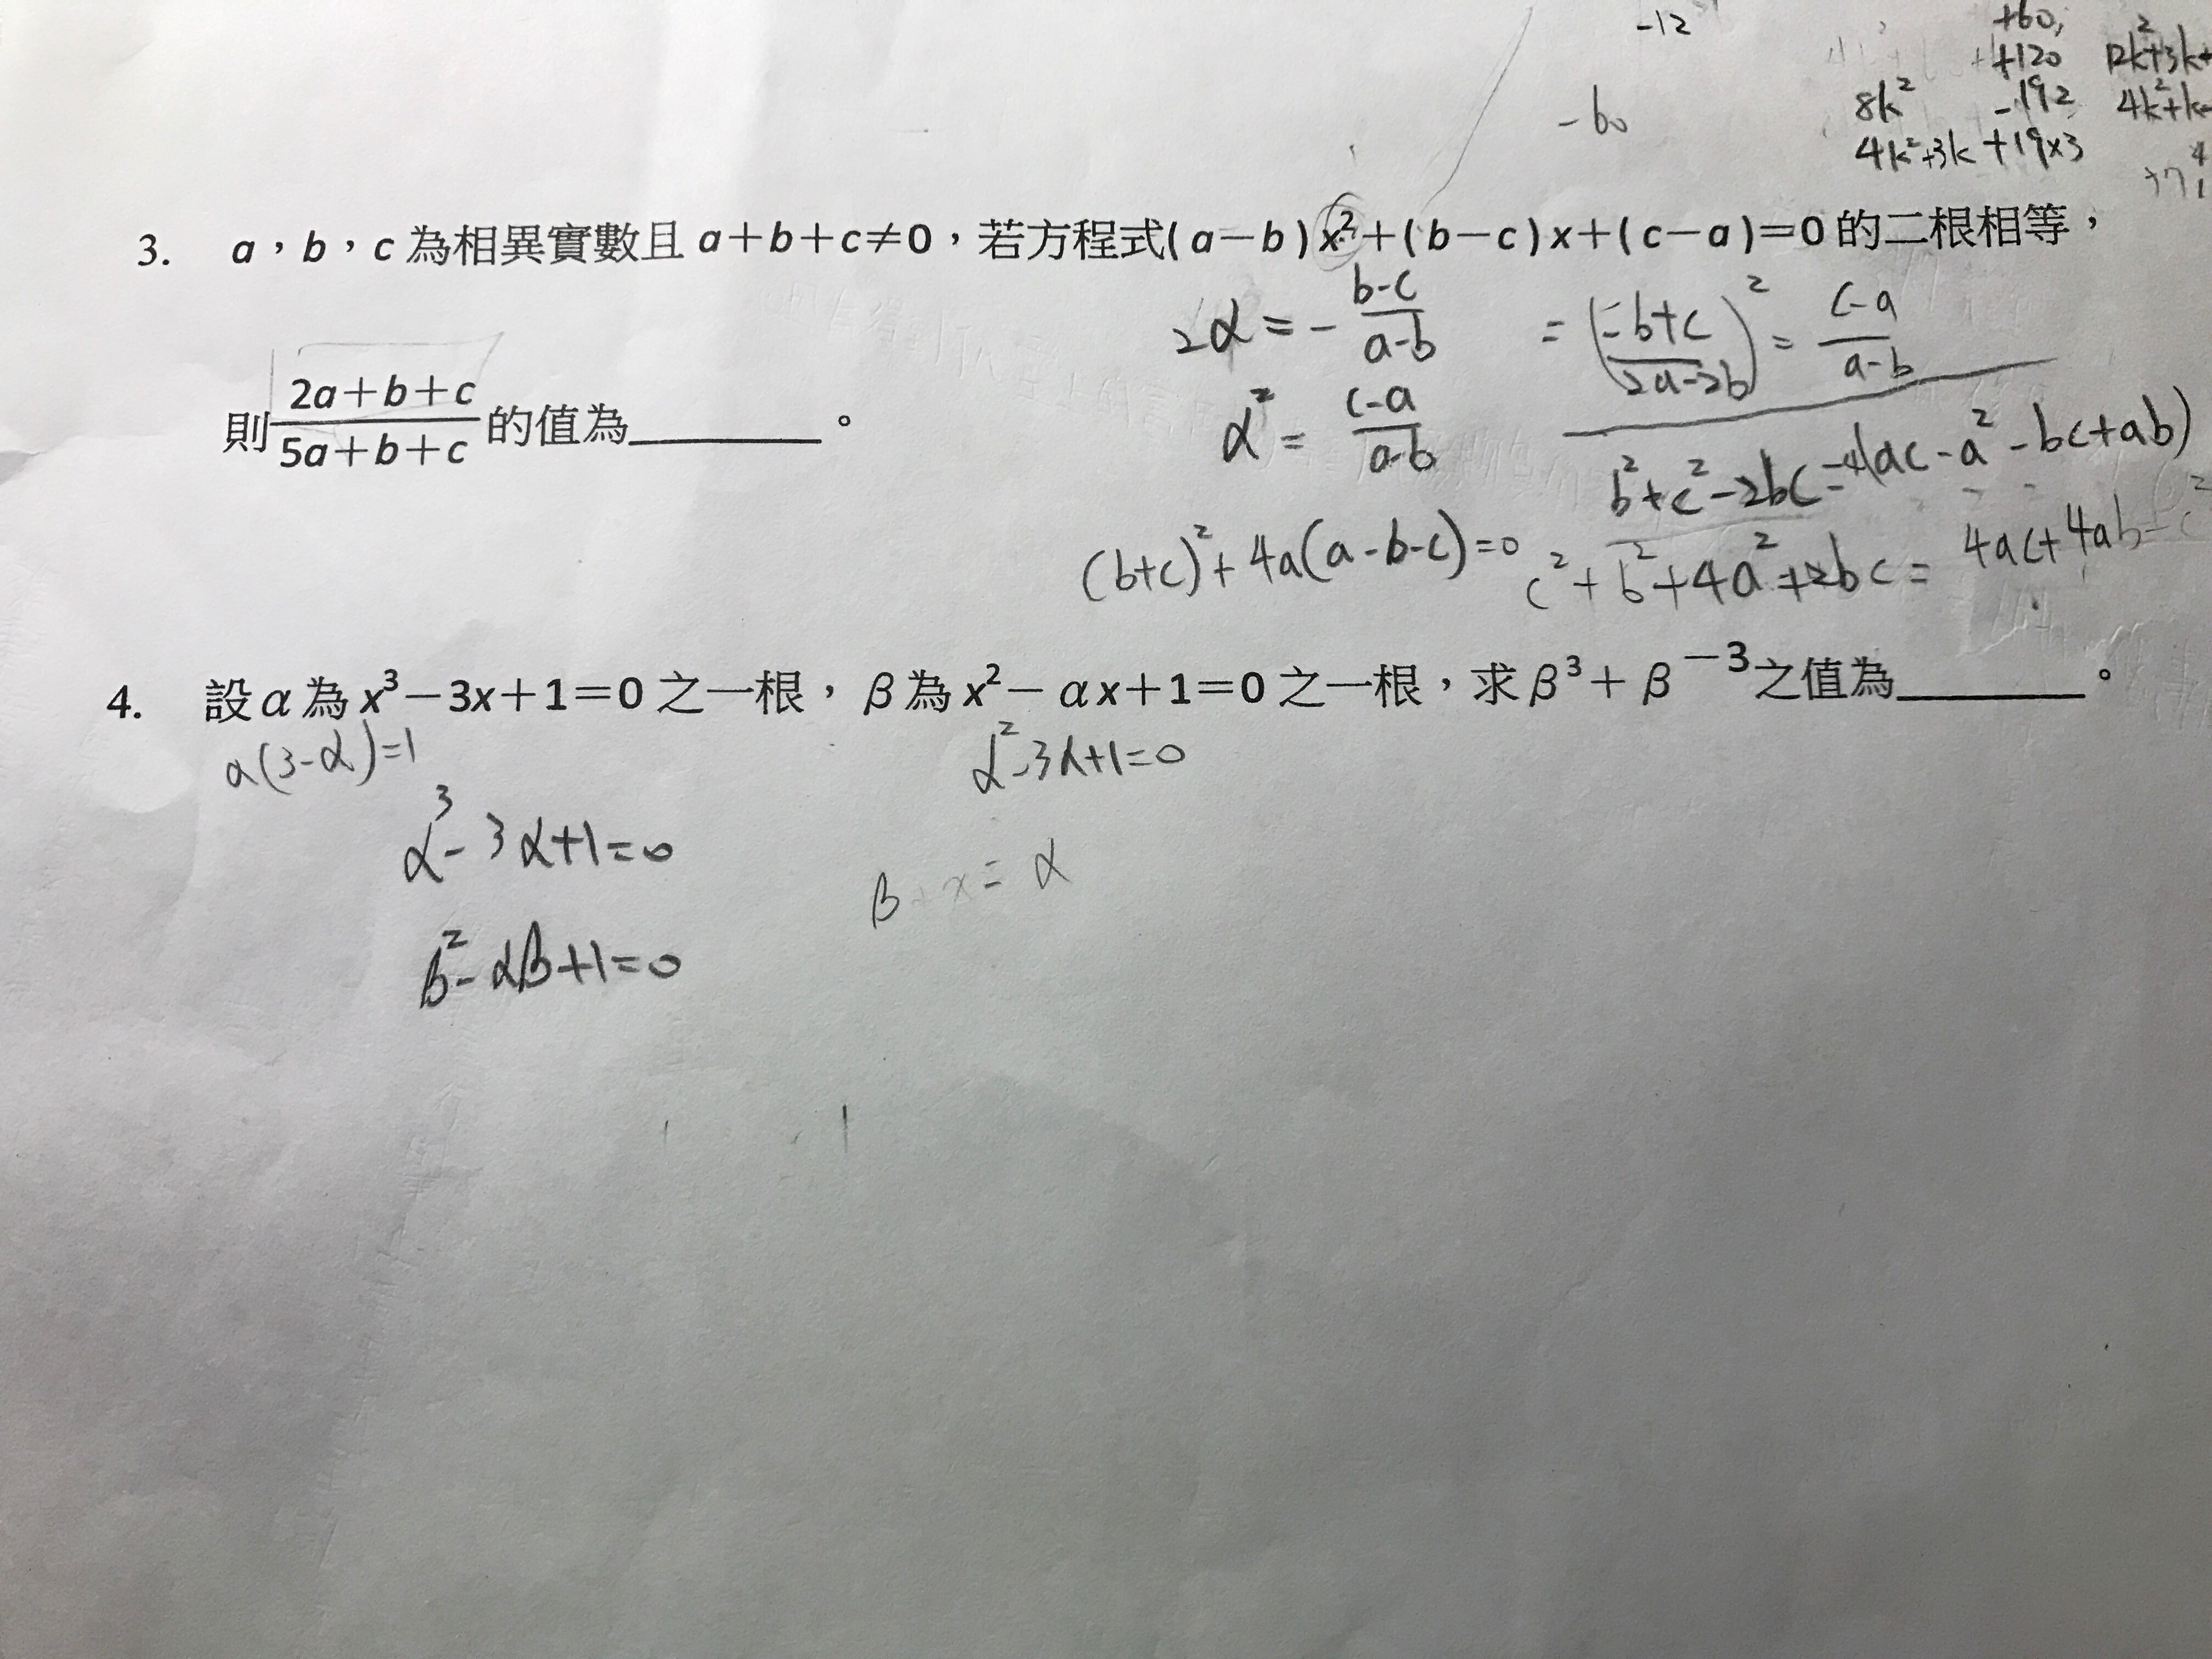 -12
+60,
+120 12k²+3k+
8k² -192 4k²+k-
-60
4k²+3k +19×3
3. a，b，c 為相異實數且 a＋b＋c≠0，若方程式(a－b)x²＋(b－c)x＋(c－a)＝0 的二根相等，
2α = - \frac{b-c}{a-b} = (\frac{-b+c}{2a-2b})² = \frac{c-a}{a-b}
則\frac{2a＋b＋c}{5a＋b＋c}的值為________。
α² = \frac{c-a}{a-b}
b²+c²-2bc=4(ac-a²-bc+ab)
(b+c)²+4a(a-b-c)=0 c²+b²+4a²+2bc= 4ac+4ab-c²
4. 設 α 為 x³－3x＋1＝0 之一根，β 為 x²－αx＋1＝0 之一根，求 β³＋β⁻³之值為________。
α(3-α)=1 α²-3α+1=0
α³-3α+1=0
β+x=α
β²-αβ+1=0